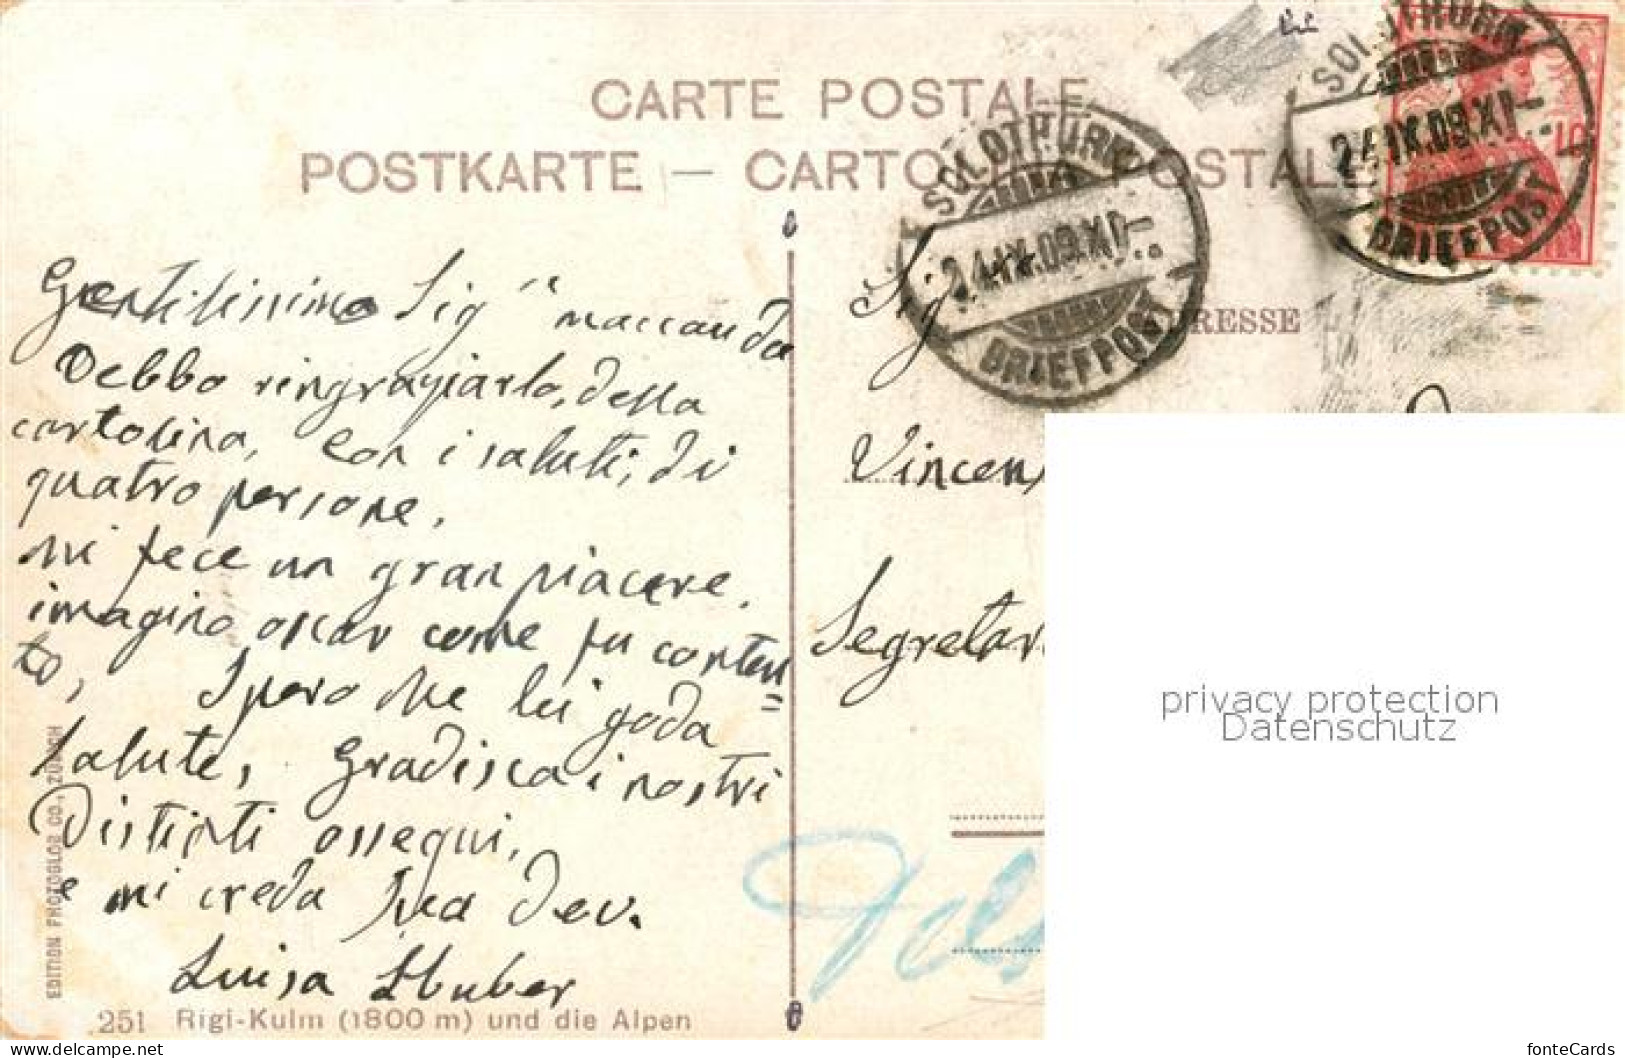 CARTE POSTALE
POSTKARTE — CARTOLINA POSTALE
SOLOTHURN
24.IX.09.XI–
BRIEFPOST
SOLOTHURN
24.IX.09.XI–
BRIEFPOST
10
ADRESSE
Gentilissimo Sig" Maccauda
Debbo ringraziarlo, della
cartolina, con i saluti, di
quatro persone.
Mi fece un gran piacere.
imagino oscar come fu conten=
to, Spero che lei goda
salute, Gradisca i nostri
Distinti ossequi,
e mi creda Sua dev.
Luisa Huber
Sig
Vincen
Segretar
privacy protection
Datenschutz
EDITION PHOTOGLOB CO., ZÜRICH
251 Rigi-Kulm (1800 m) und die Alpen
www.delcampe.net
fonteCards